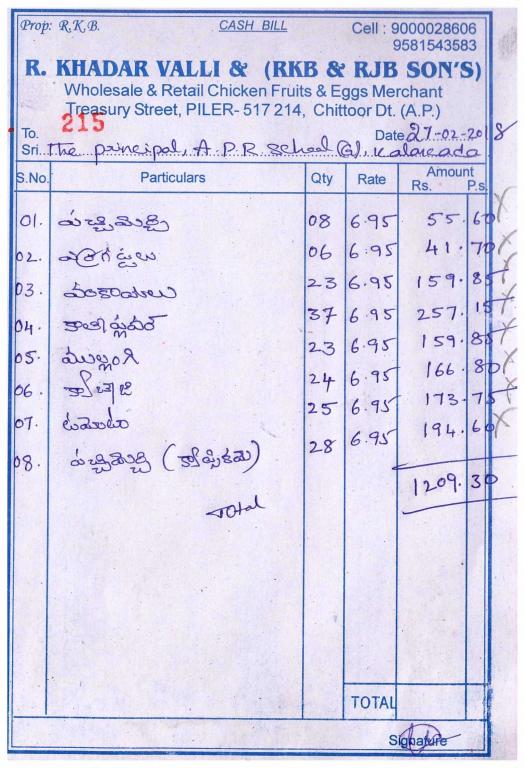 Prop: R.K.B. CASH BILL Cell : 9000028606
9581543583
R. KHADAR VALLI & (RKB & RJB SON'S)
Wholesale & Retail Chicken Fruits & Eggs Merchant
Treasury Street, PILER- 517 214, Chittoor Dt. (A.P.)
To. 215 Date 27-02-2018
Sri. The principal, A.P.R School (G), Kalakada
S.No. Particulars Qty Rate Amount
Rs. P.s.
01. పచ్చిమిర్చి 08 6.95 55.60
02. 06 6.95 41.70
03. వంకాయలు 23 6.95 159.85
04. కాలిఫ్లవర్ 37 6.95 257.15
05. ముల్లంగి 23 6.95 159.85
06. 24 6.95 166.80
07. టమోటో 25 6.95 173.75
08. పచ్చిమిర్చి (క్యాప్సికమ్) 28 6.95 194.60
Total 1209.30
TOTAL
Signature